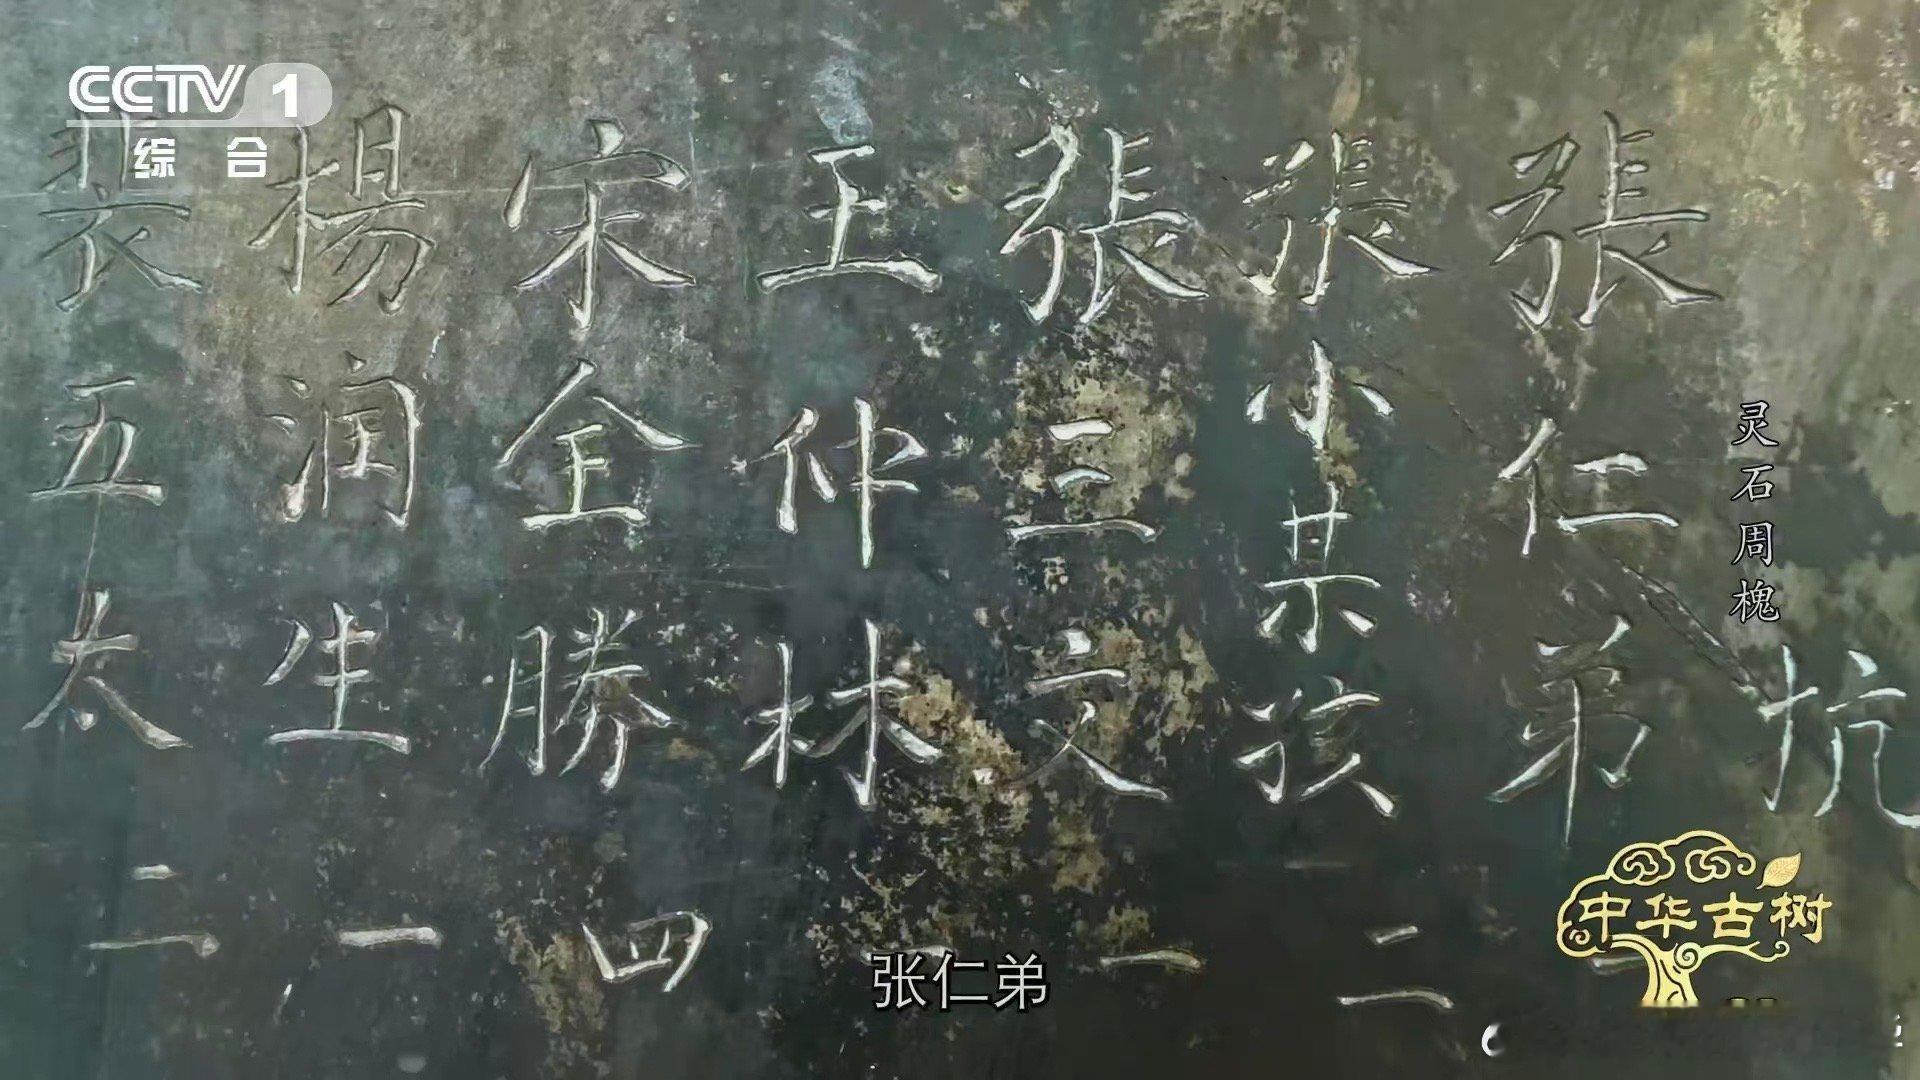 CCTV 1
综合
抗
張仁弟
張小某孩二
張三文一
王仲林
宋全勝四
楊润生一
裴五太二
灵石周槐
中华古树
张仁弟